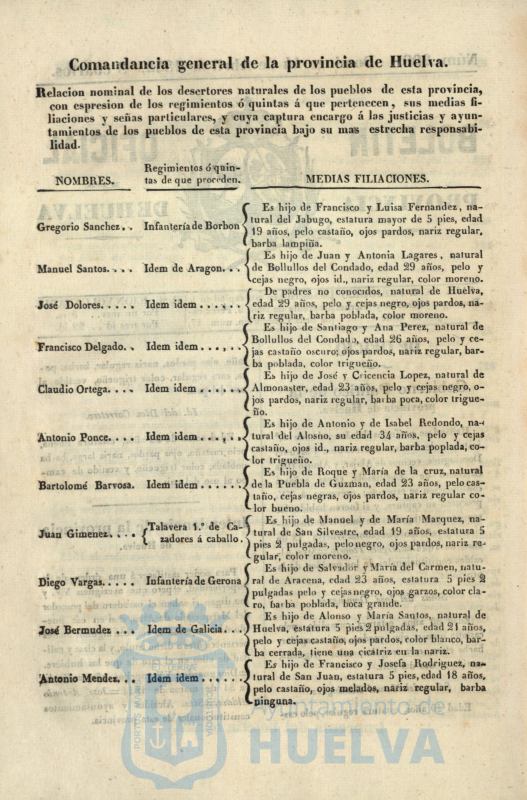 Comandancia general de la provincia de Huelva.
Relacion nominal de los desertores naturales de los pueblos de esta provincia,
con espresion de los regimientos ó quintas á que pertenecen, sus medias fi-
liaciones y señas particulares, y cuya captura encargo á las justicias y ayun-
tamientos de los pueblos de esta provincia bajo su mas estrecha responsabi-
lidad.
NOMBRES.
Regimientos ó quin-
tas de que proceden.
MEDIAS FILIACIONES.
Gregorio Sanchez..
Infantería de Borbon
Es hijo de Francisco y Luisa Fernandez, na-
tural del Jabugo, estatura mayor de 5 pies, edad
19 años, pelo castaño, ojos pardos, nariz regular,
barba lampiña.
Manuel Santos....
Idem de Aragon...
Es hijo de Juan y Antonia Lagares, natural
de Bollullos del Condado, edad 29 años, pelo y
cejas negro, ojos id., nariz regular, color moreno.
José Dolores.....
Idem idem ......
De padres no conocidos, natural de Huelva,
edad 29 años, pelo y cejas negro, ojos pardos, na-
riz regular, barba poblada, color moreno.
Francisco Delgado..
Idem idem ......
Es hijo de Santiago y Ana Perez, natural de
Bollullos del Condado, edad 26 años, pelo y ce-
jas castaño oscuro; ojos pardos, nariz regular, bar-
ba poblada, color trigueño.
Claudio Ortega....
Idem idem ......
Es hijo de José y Cricencia Lopez, natural de
Almonaster, edad 23 años, pelo y cejas negro, o-
jos pardos, nariz regular, barba poca, color trigue-
ño.
Antonio Ponce....
Idem idem ......
Es hijo de Antonio y de Isabel Redondo, na-
tural del Alosno, su edad 34 años, pelo y cejas
castaño, ojos id., nariz regular, barba poplada, co-
lor trigueño.
Bartolomé Barvosa.
Idem idem ......
Es hijo de Roque y María de la cruz, natural
de la Puebla de Guzman, edad 23 años, pelo cas-
taño, cejas negras, ojos pardos, nariz regular co-
lor bueno.
Juan Gimenez....
Talavera 1.º de Ca-
zadores á caballo.
Es hijo de Manuel y de María Marquez, na-
tural de San Silvestre, edad 19 años, estatura 5
pies 2 pulgadas, pelo negro, ojos pardos, nariz re-
gular, color moreno.
Diego Vargas.....
Infantería de Gerona
Es hijo de Salvador y María del Carmen, natu-
ral de Aracena, edad 23 años, estatura 5 pies 2
pulgadas pelo y cejas negro, ojos garzos, color cla-
ro, barba poblada, boca grande.
José Bermudez ...
Idem de Galicia...
Es hijo de Alonso y María Santos, natural de
Huelva, estatura 5 pies 2 pulgadas, edad 21 años,
pelo y cejas castaño, ojos pardos, color blanco, bar-
ba cerrada, tiene una cicatriz en la nariz.
Antonio Mendez...
Idem idem ......
Es hijo de Francisco y Josefa Rodriguez, na-
tural de San Juan, estatura 5 pies, edad 18 años,
pelo castaño, ojos melados, nariz regular, barba
ninguna.
Ayuntamiento de
HUELVA